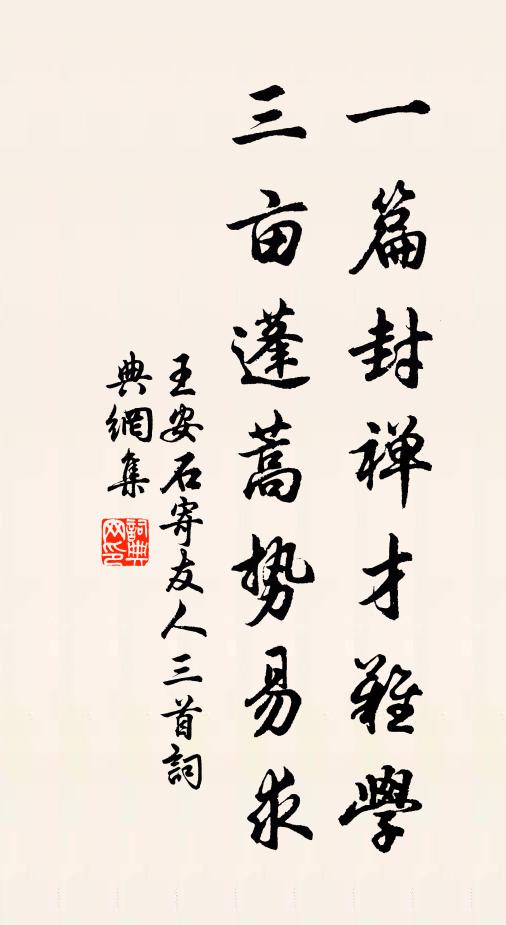 一篇封禅才難學
三亩蓬蒿势易求
王安石寄友人三首詞
典網集
詞典網印